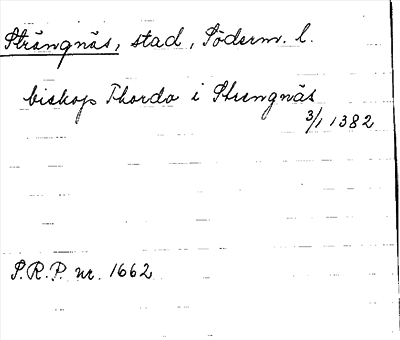 Strängnäs, stad, Söderm. l.
biskop Thordo i Strengnäs
3/1 1382
S.R.P. nr. 1662